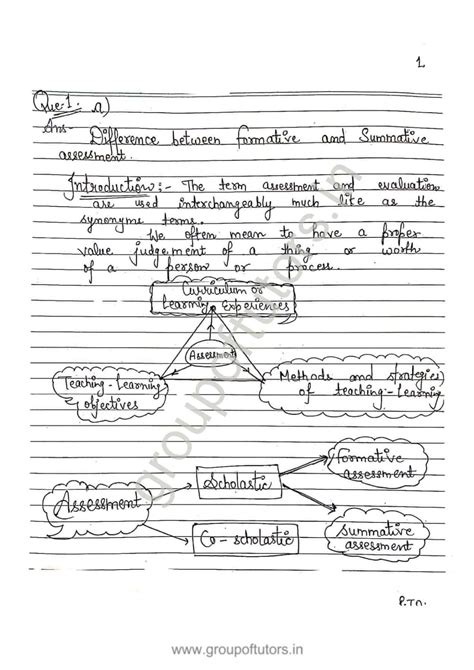 1
Que:-1. a)
Ans- Difference between formative and Summative
assessment.
Introduction:- The term assessment and evaluation
are used interchangeably much like as the
synonyme terms.
We often mean to have a proper
value judgement of a thing or worth
of a person or process.
Curriculum or
Learning Experiences
Assessment
Teaching-Learning
objectives
Methods and strategies
of teaching-Learning
Assessment
Scholastic
Co-scholastic
formative
assessment
Summative
assessment
P.T.O.
groupoftutors.in
www.groupoftutors.in